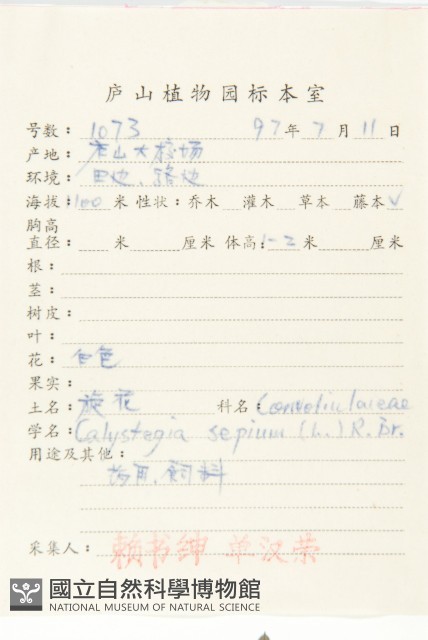 庐山植物园标本室
号数：1073 97年7月11日
产地：庐山大校场
环境：田边、路边
海拔：100米 性状：乔木 灌木 草本 藤本✓
胸高
直径： 米 厘米 体高：1-2米 厘米
根：
茎：
树皮：
叶：
花：白色
果实：
土名：旋花 科名：Convolvulaceae
学名：Calystegia sepium (L.) R. Br.
用途及其他：
药用、饲料
采集人：赖书绅 单汉荣
國立自然科學博物館
NATIONAL MUSEUM OF NATURAL SCIENCE